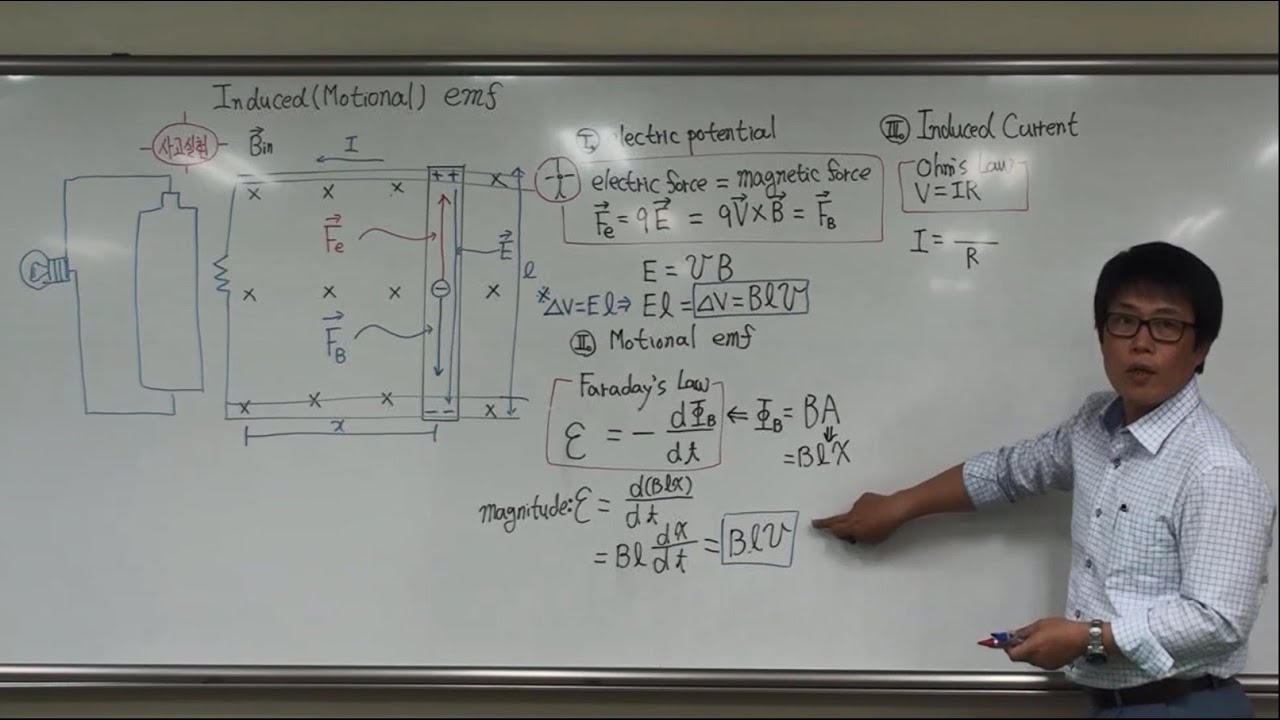 Induced(Motional) emf
사고실험
B⃗in
I
x x x x
++
F⃗e
E⃗
l
x x x x
⊖
F⃗B
x x x x
--
x
Ⅰ. electric potential
electric force = magnetic force
F⃗e = qE⃗ = qV⃗×B⃗ = F⃗B
E = vB
*ΔV=El⇒ El = ΔV=Blv
Ⅱ. Motional emf
Faraday's Law
ε = - dΦB/dt ⇐ ΦB = BA
⇓
=Blx
magnitude: ε = d(Blx)/dt
= Bl dx/dt = Blv
Ⅲ. Induced Current
Ohm's Law
V=IR
I = /R